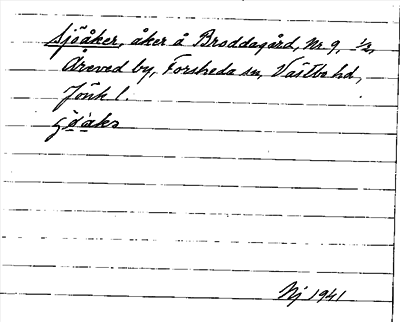 Sjöåker, åker å Broddagård, Nr 9, ½,
Åreved by, Forsheda sn, Västbo hd,
Jönk l.
Nj 1941